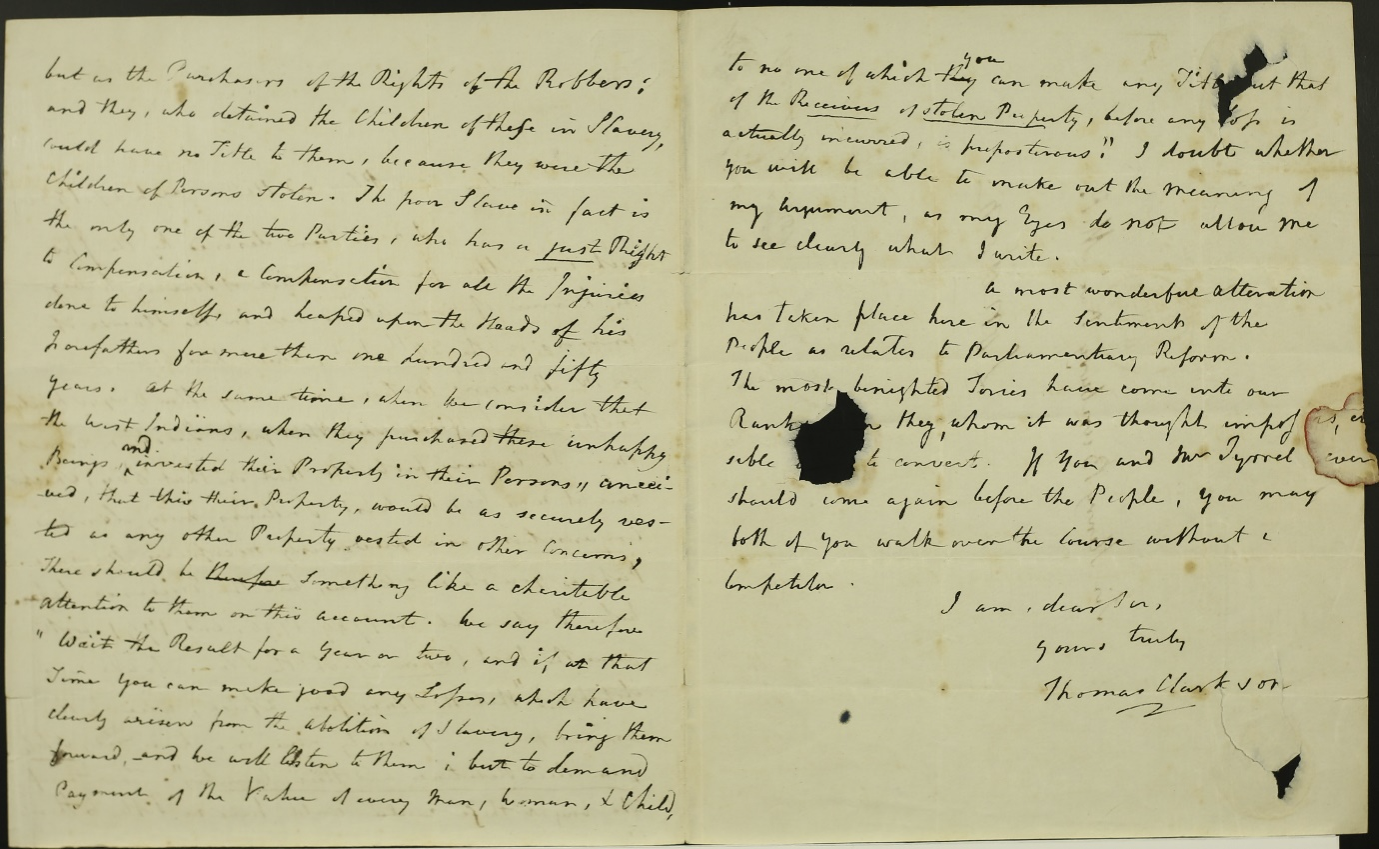 but as the Purchasers of the Rights of the Robbers;
and they, who detained the Children of these in Slavery,
could have no Title to them, because they were the
Children of Persons stolen. The poor Slave in fact is
the only one of the two Parties, who has a just Right
to Compensation, a Compensation for all the Injuries
done to himself, and heaped upon the Heads of his
Forefathers for more than one hundred and fifty
years. At the same time, when we consider that
the West Indians, when they purchased these unhappy
Beings, and invested their Property in their Persons, concei-
ved, that this their Property, would be as securely ves-
ted as any other Property vested in other Concerns,
There should be therefore something like a charitable
attention to them on this account. We say therefore
"Wait the Result for a Year or two, and if at that
Time you can make good any Losses, which have
clearly arisen from the abolition of Slavery, bring them
forward, and we will listen to them; but to demand
Payment of the Value of every Man, Woman, & Child,
to no one of which they you can make any Title but that
of the Receivers of stolen Property, before any Loss is
actually incurred, is preposterous". I doubt whether
you will be able to make out the meaning of
my argument, as my Eyes do not allow me
to see clearly what I write.
a most wonderful alteration
has taken place here in the Sentiments of the
People as relates to Parliamentary Reform.
The most benighted Tories have come into our
Ranks they, whom it was thought impos
sible to convert. If You and Mr Tyrrel ever
should come again before the People, you may
both of you walk over the Course without a
Competitor.
I am, dear Sir,
yours truly
Thomas Clarkson